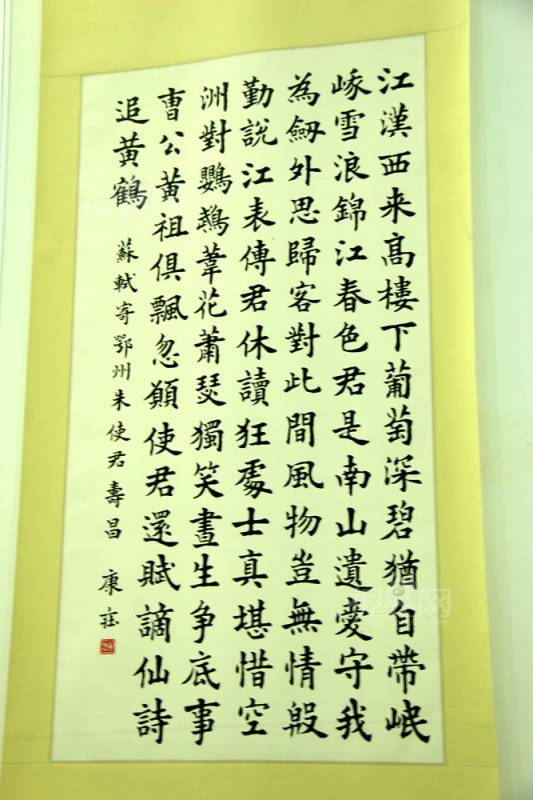 江漢西来高樓下葡萄深碧猶自帶岷
峨雪浪錦江春色君是南山遺愛守我
為劒外思歸客對此間風物豈無情殷
勤說江表傳君休讀狂處士真堪惜空
洲對鸚鵡葦花蕭瑟獨笑書生争底事
曹公黃祖俱飄忽願使君還賦謫仙詩
追黃鶴
蘇軾寄鄂州朱使君壽昌 康